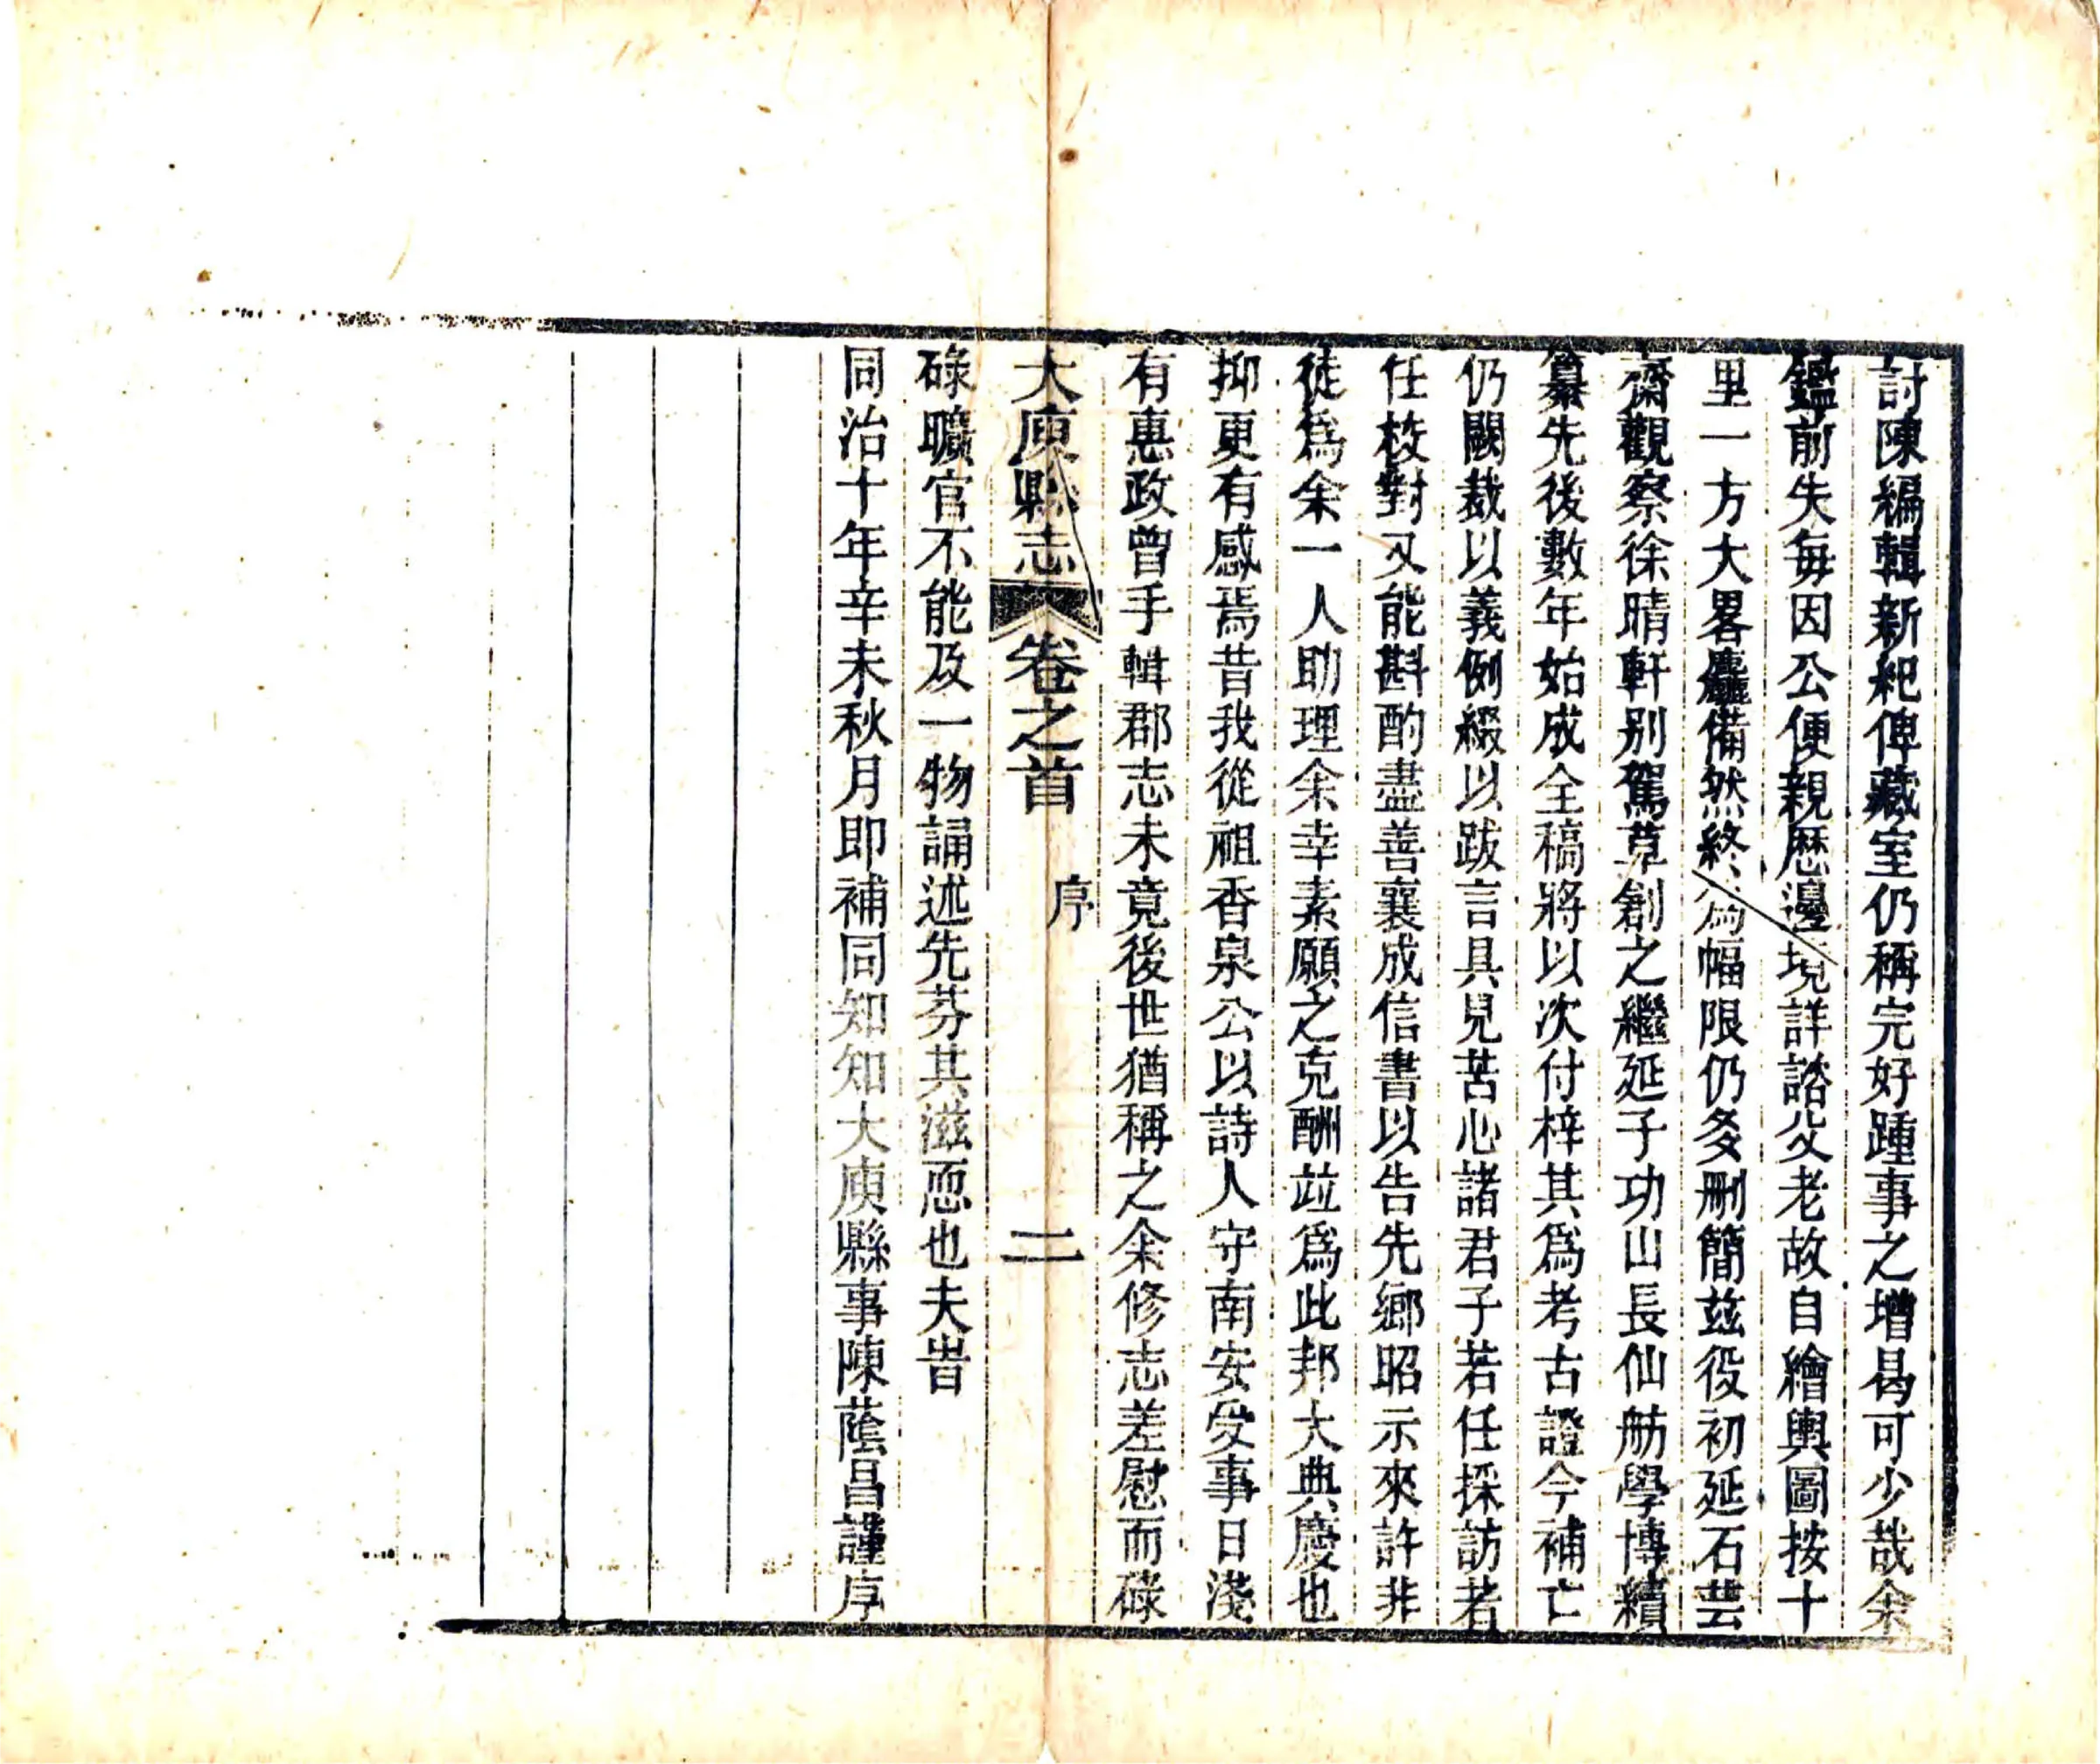 討陳編輯新紀俾藏室仍稱完好踵事之增曷可少哉余
鑑前失每因公便親歷邊境詳諮父老故自繪輿圖按十
里一方大畧麤備然終爲幅限仍多刪簡玆役初延石芸
齋觀察徐晴軒别駕草創之繼延子功山長仙舫學博續
纂先後數年始成全稿將以次付梓其爲考古證今補亡
仍闕裁以義例綴以跋言具見苦心諸君子若任採訪者
任校對又能斟酌盡善襄成信書以告先鄉昭示來許非
徒爲余一人助理余幸素願之克酬竝爲此邦大典慶也
抑更有感焉昔我從祖香泉公以詩人守南安受事日淺
有惠政曾手輯郡志未竟後世猶稱之余修志差慰而碌
大庾縣志 卷之首 序 二
碌曠官不能及一物誦述先芬其滋恧也夫旹
同治十年辛未秋月即補同知知大庾縣事陳蔭昌謹序